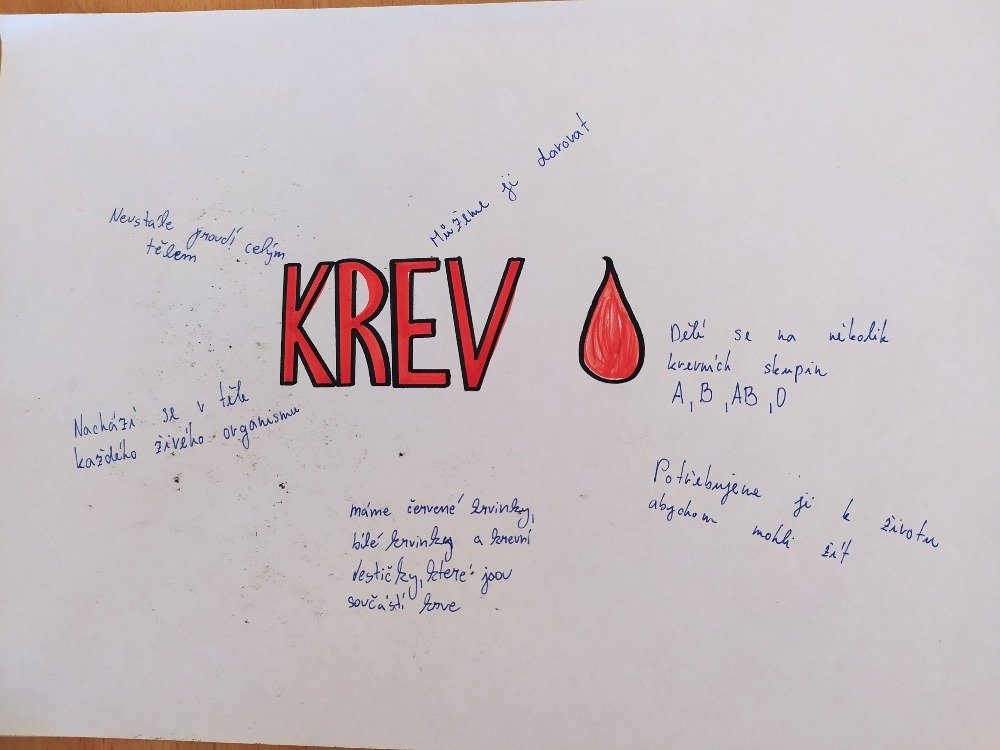 Můžeme ji darovat
Neustále proudí celým
tělem
KREV
Dělí se na několik
krevních skupin
A, B, AB, 0
Nachází se v těle
každého živého organismu
Potřebujeme ji k životu
abychom mohli žít
máme červené krvinky,
bílé krvinky a krevní
destičky, které jsou
součástí krve